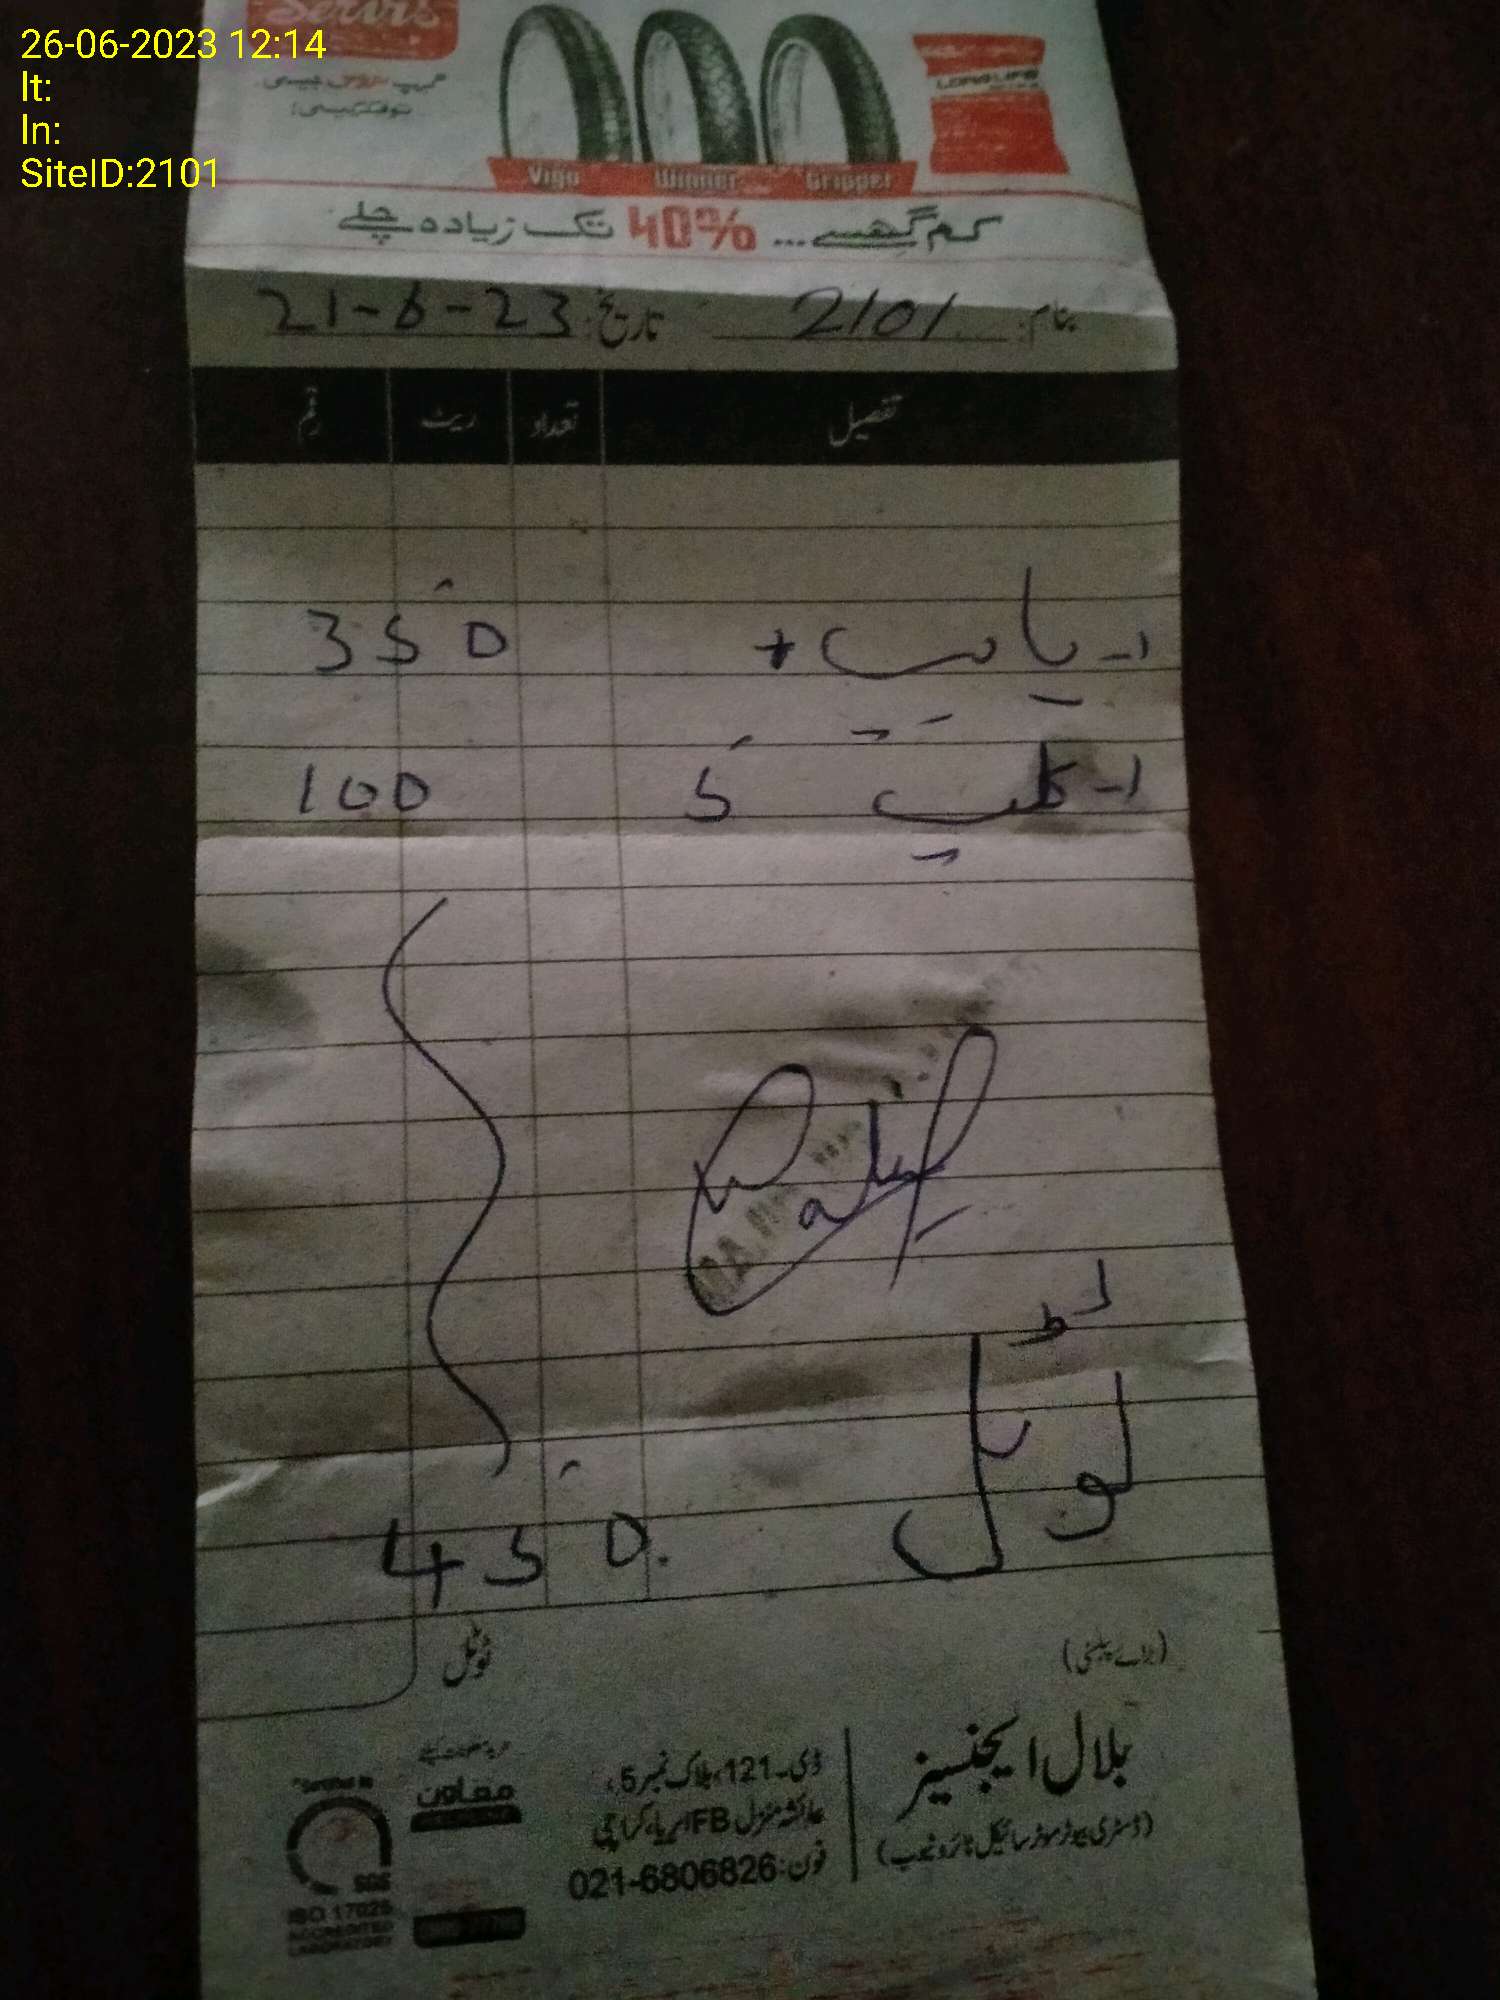 26-06-2023 12:14
lt:
ln:
SiteID:2101
Servis
Vigo Winner Gripper
LONG LIFE
کم گھسے... 40% تک زیادہ چلے
بنام: 2101 تاریخ: 21-6-23
تفصیل تعداد ریٹ رقم
1- پائپ + 350
1- کلپ 5 100
ٹوٹل 450.
ٹوٹل
(برائے پبلسٹی)
بلال ایجنسیز
(ڈسٹری بیوٹر موٹر سائیکل ٹائر و ٹیوب)
ڈی-121، بلاک نمبر 5،
عائشہ منزل FB ایریا، کراچی
فون: 021-6806826
معاون
SGS
ISO 17025
ACCREDITED
LABORATORY